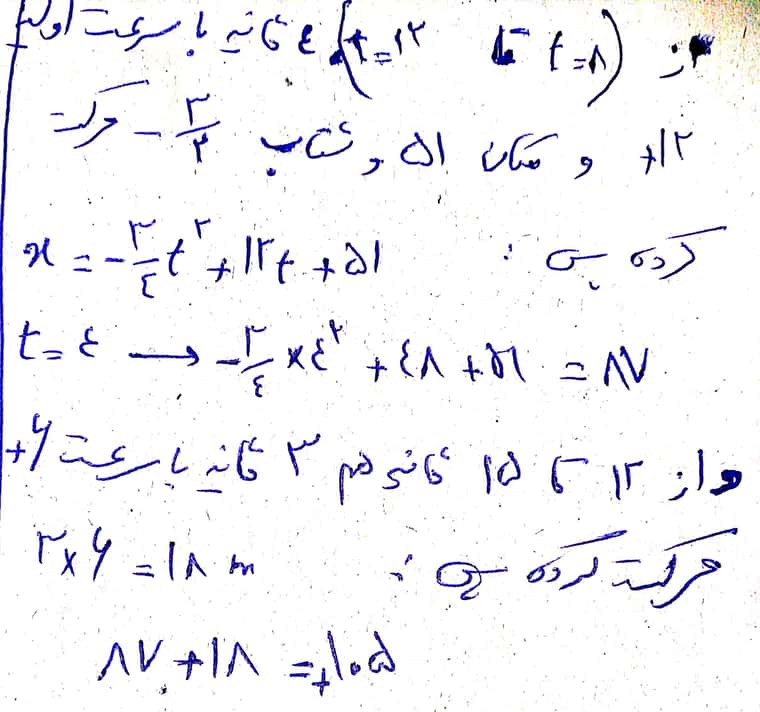 از (t=۸ تا t=۱۲) ٤ ثانیه با سرعت اولیه
+۱۲ و مکان ۵۱ و شتاب -۳/۲ حرکت
کرده پس : x = -۳/٤ t² + ۱۲t + ۵۱
t=٤ → -۳/٤ × ٤² + ٤۸ + ۵۱ = ۸۷
و از ۱۲ تا ۱۵ ثانیه هم ۳ ثانیه با سرعت +۶
حرکت کرده پس : ۳×۶ = ۱۸ m
۸۷ + ۱۸ = +۱۰۵